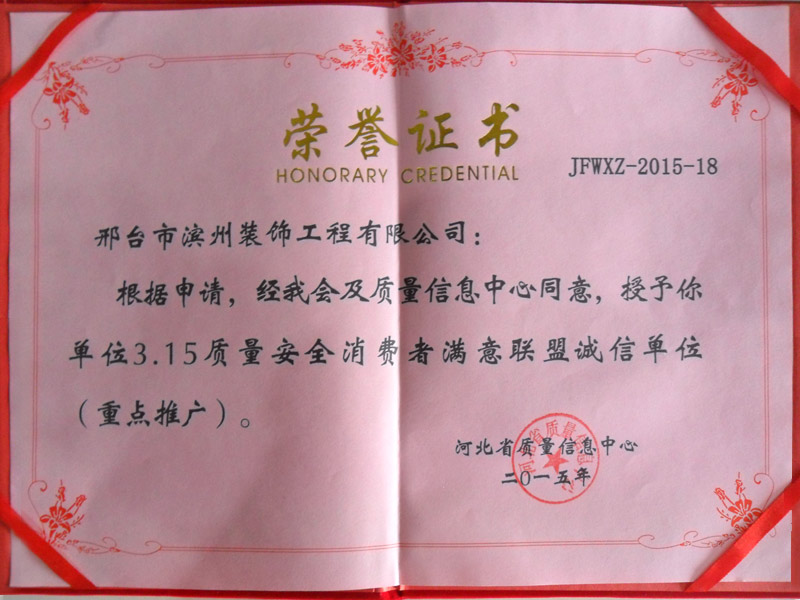 荣誉证书
HONORARY CREDENTIAL
JFWXZ-2015-18
邢台市滨州装饰工程有限公司：
根据申请，经我会及质量信息中心同意，授予你
单位3.15质量安全消费者满意联盟诚信单位
（重点推广）。
河北省质量信息中心
二〇一五年